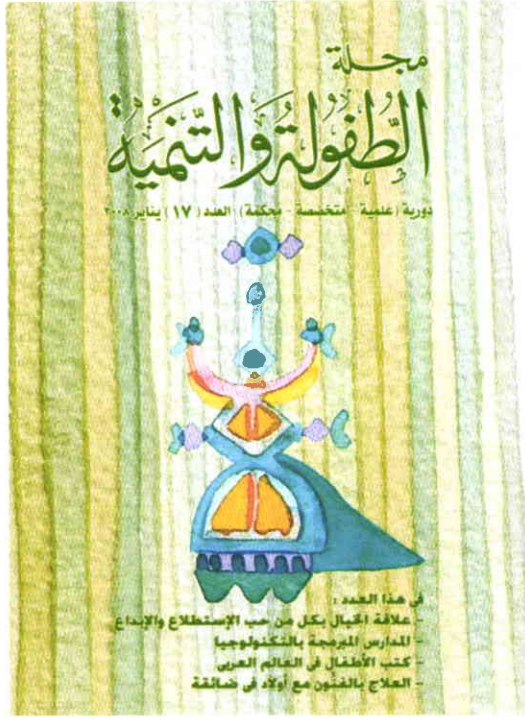 مجلة
الطفولة والتنمية
دورية (علمية - متخصصة - محكمة) العدد (١٧) يناير ٢٠٠٨
فى هذا العدد :
- علاقة الخيال بكل من حب الإستطلاع والإبداع
- المدارس المبرمجة بالتكنولوجيا
- كتب الأطفال فى العالم العربى
- العلاج بالفنون مع أولاد فى ضائقة